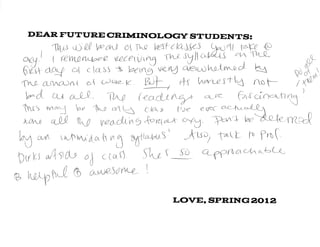 DEAR FUTURE CRIMINOLOGY STUDENTS:
This will be one of the best classes you'll take @
Oxy! I remember receiving the syllabus on the
first day of class & being very overwhelmed by
the amount of work. BUT, its honestly not
bad at all. The readings are fascinating,
Do all of them!
this may be the only class I've ever actually
done all the reading for @ oxy. Don't be deterred
by an intimidating syllabus! Also, talk to Prof.
Dirks outside of class She's so approachable
& helpful & awesome!
LOVE, SPRING 2012